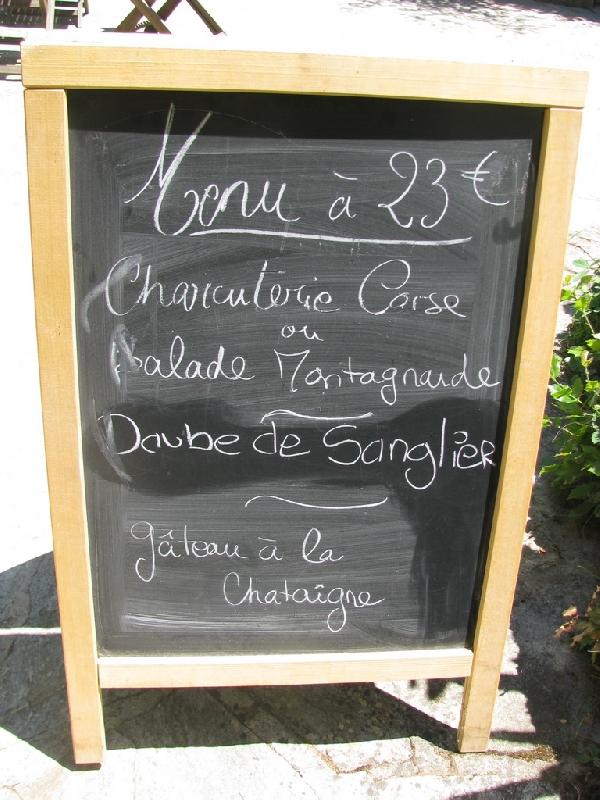 Menu à 23€
Charcuterie Corse
ou
Salade Montagnarde
Daube de Sanglier
gâteau à la
Chataîgne